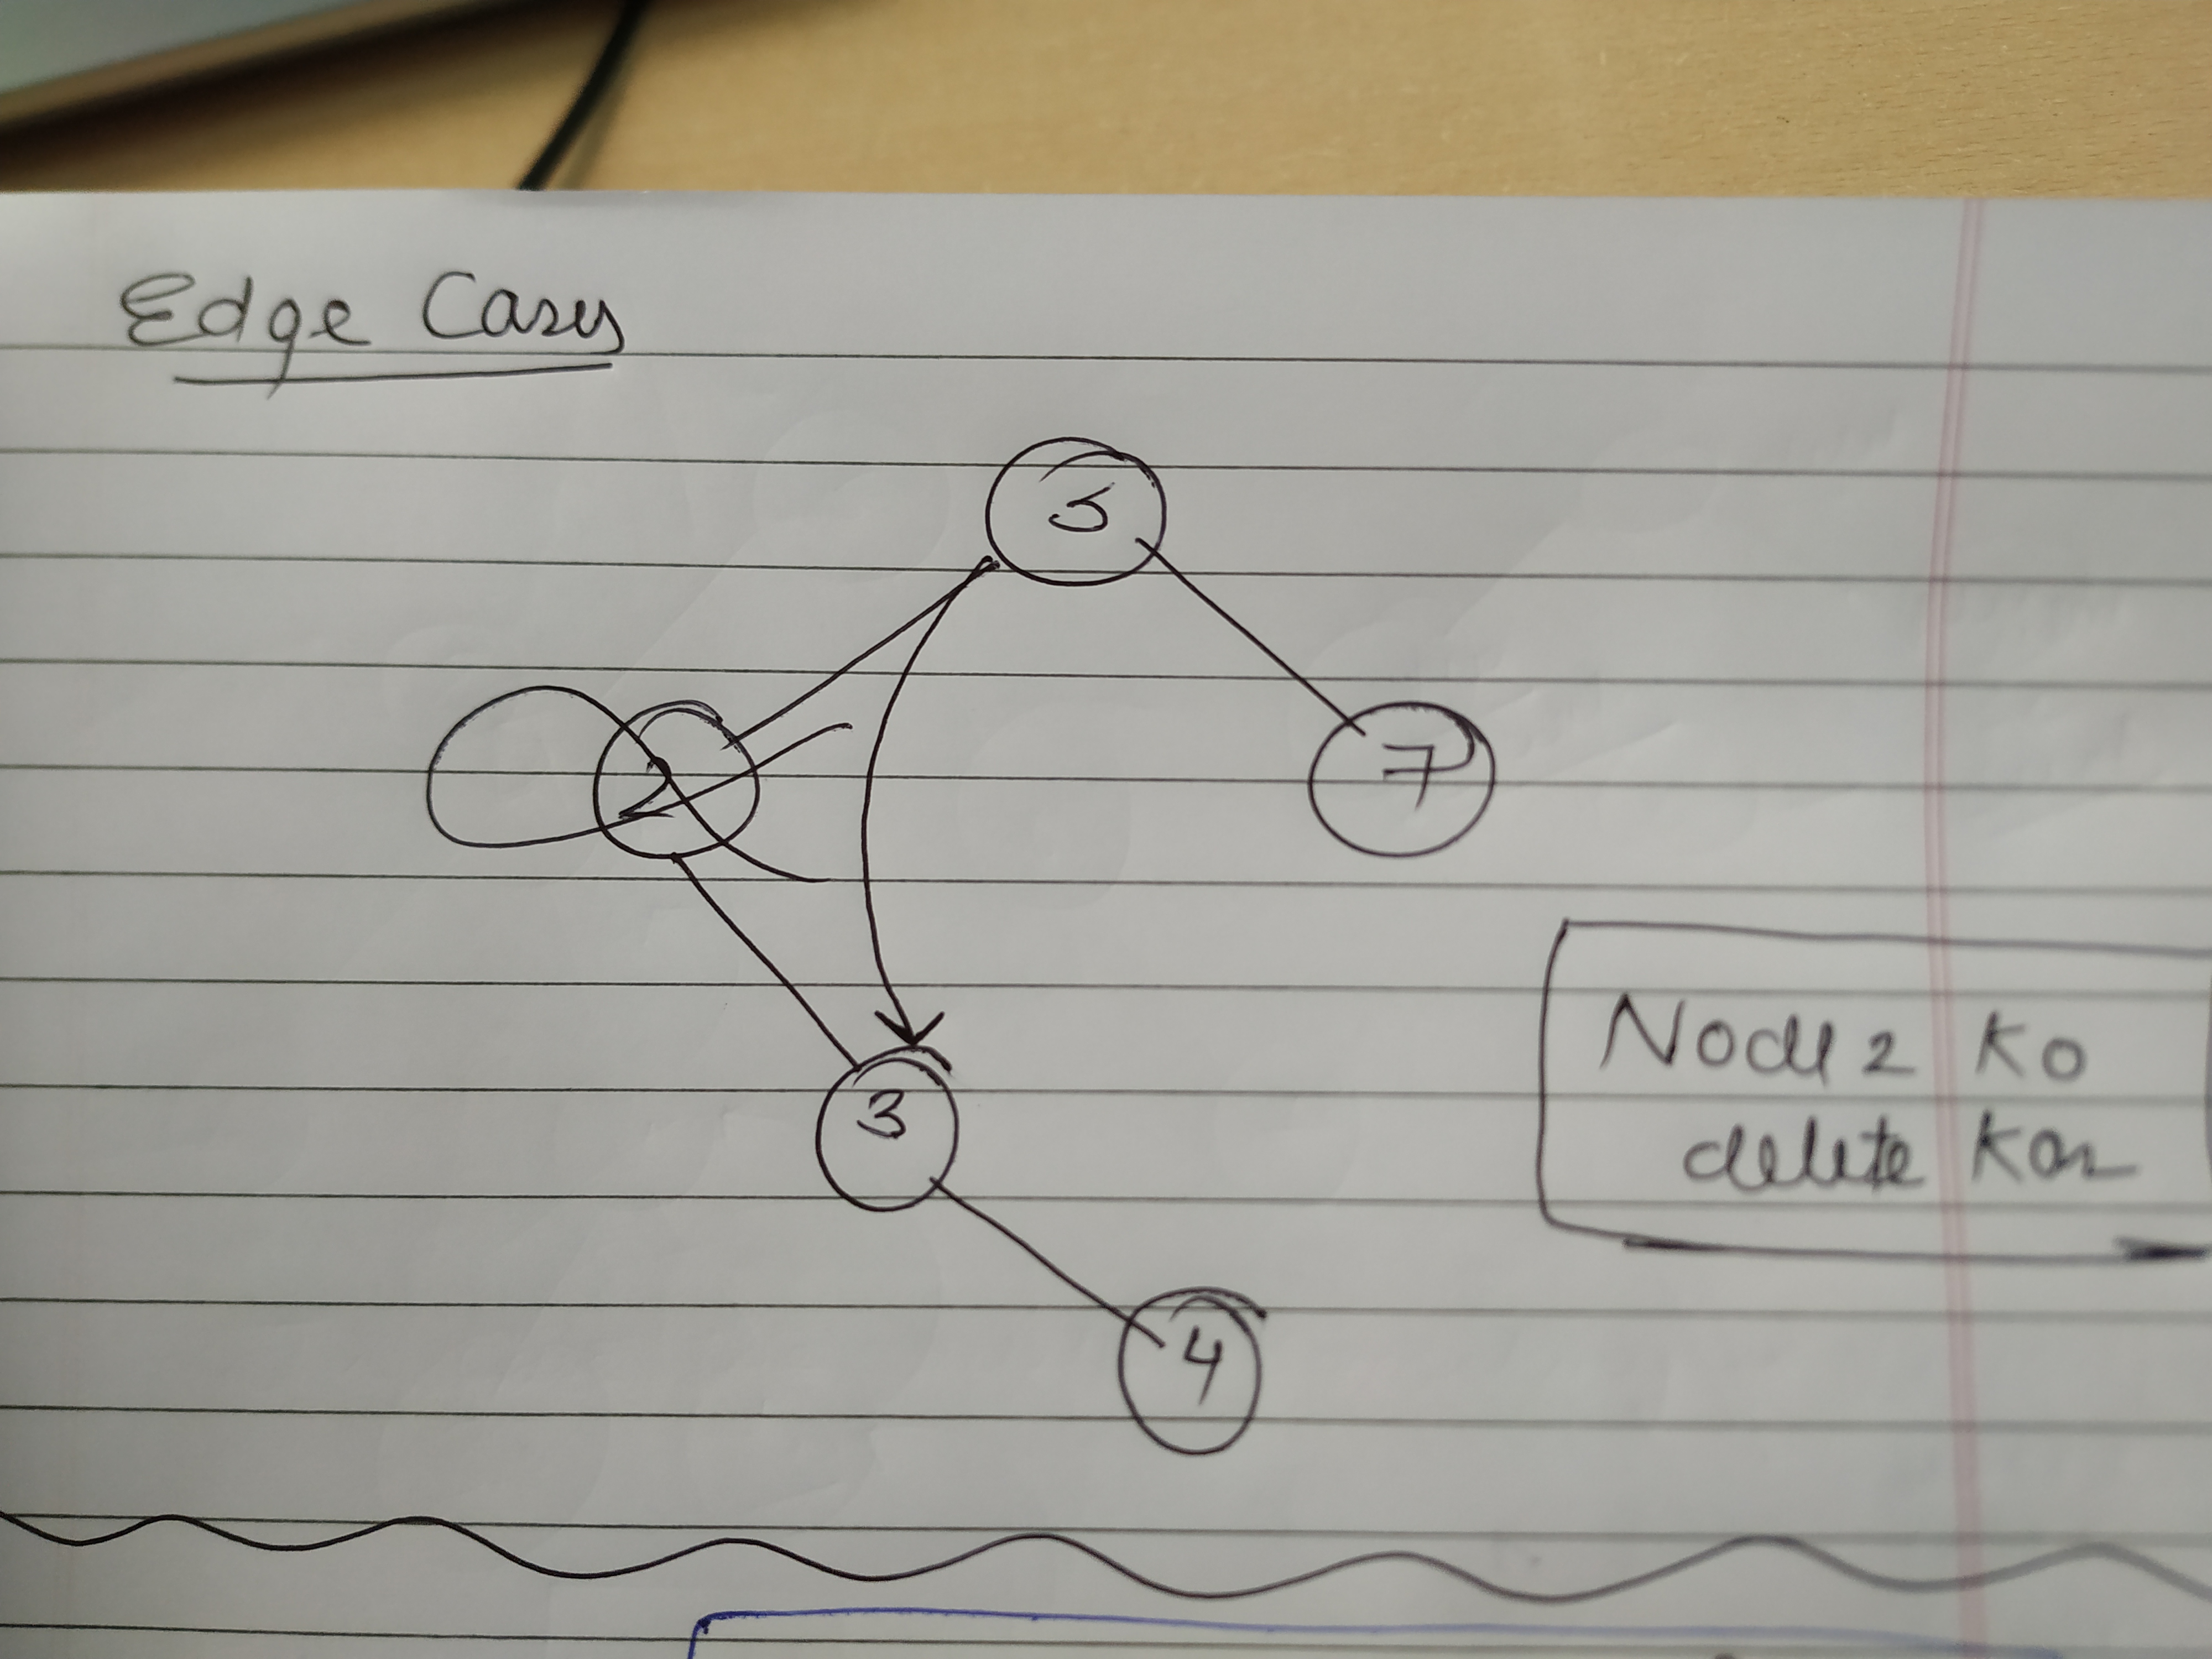 Edge Cases
5
2
7
Node 2 ko
3
delete kar
4